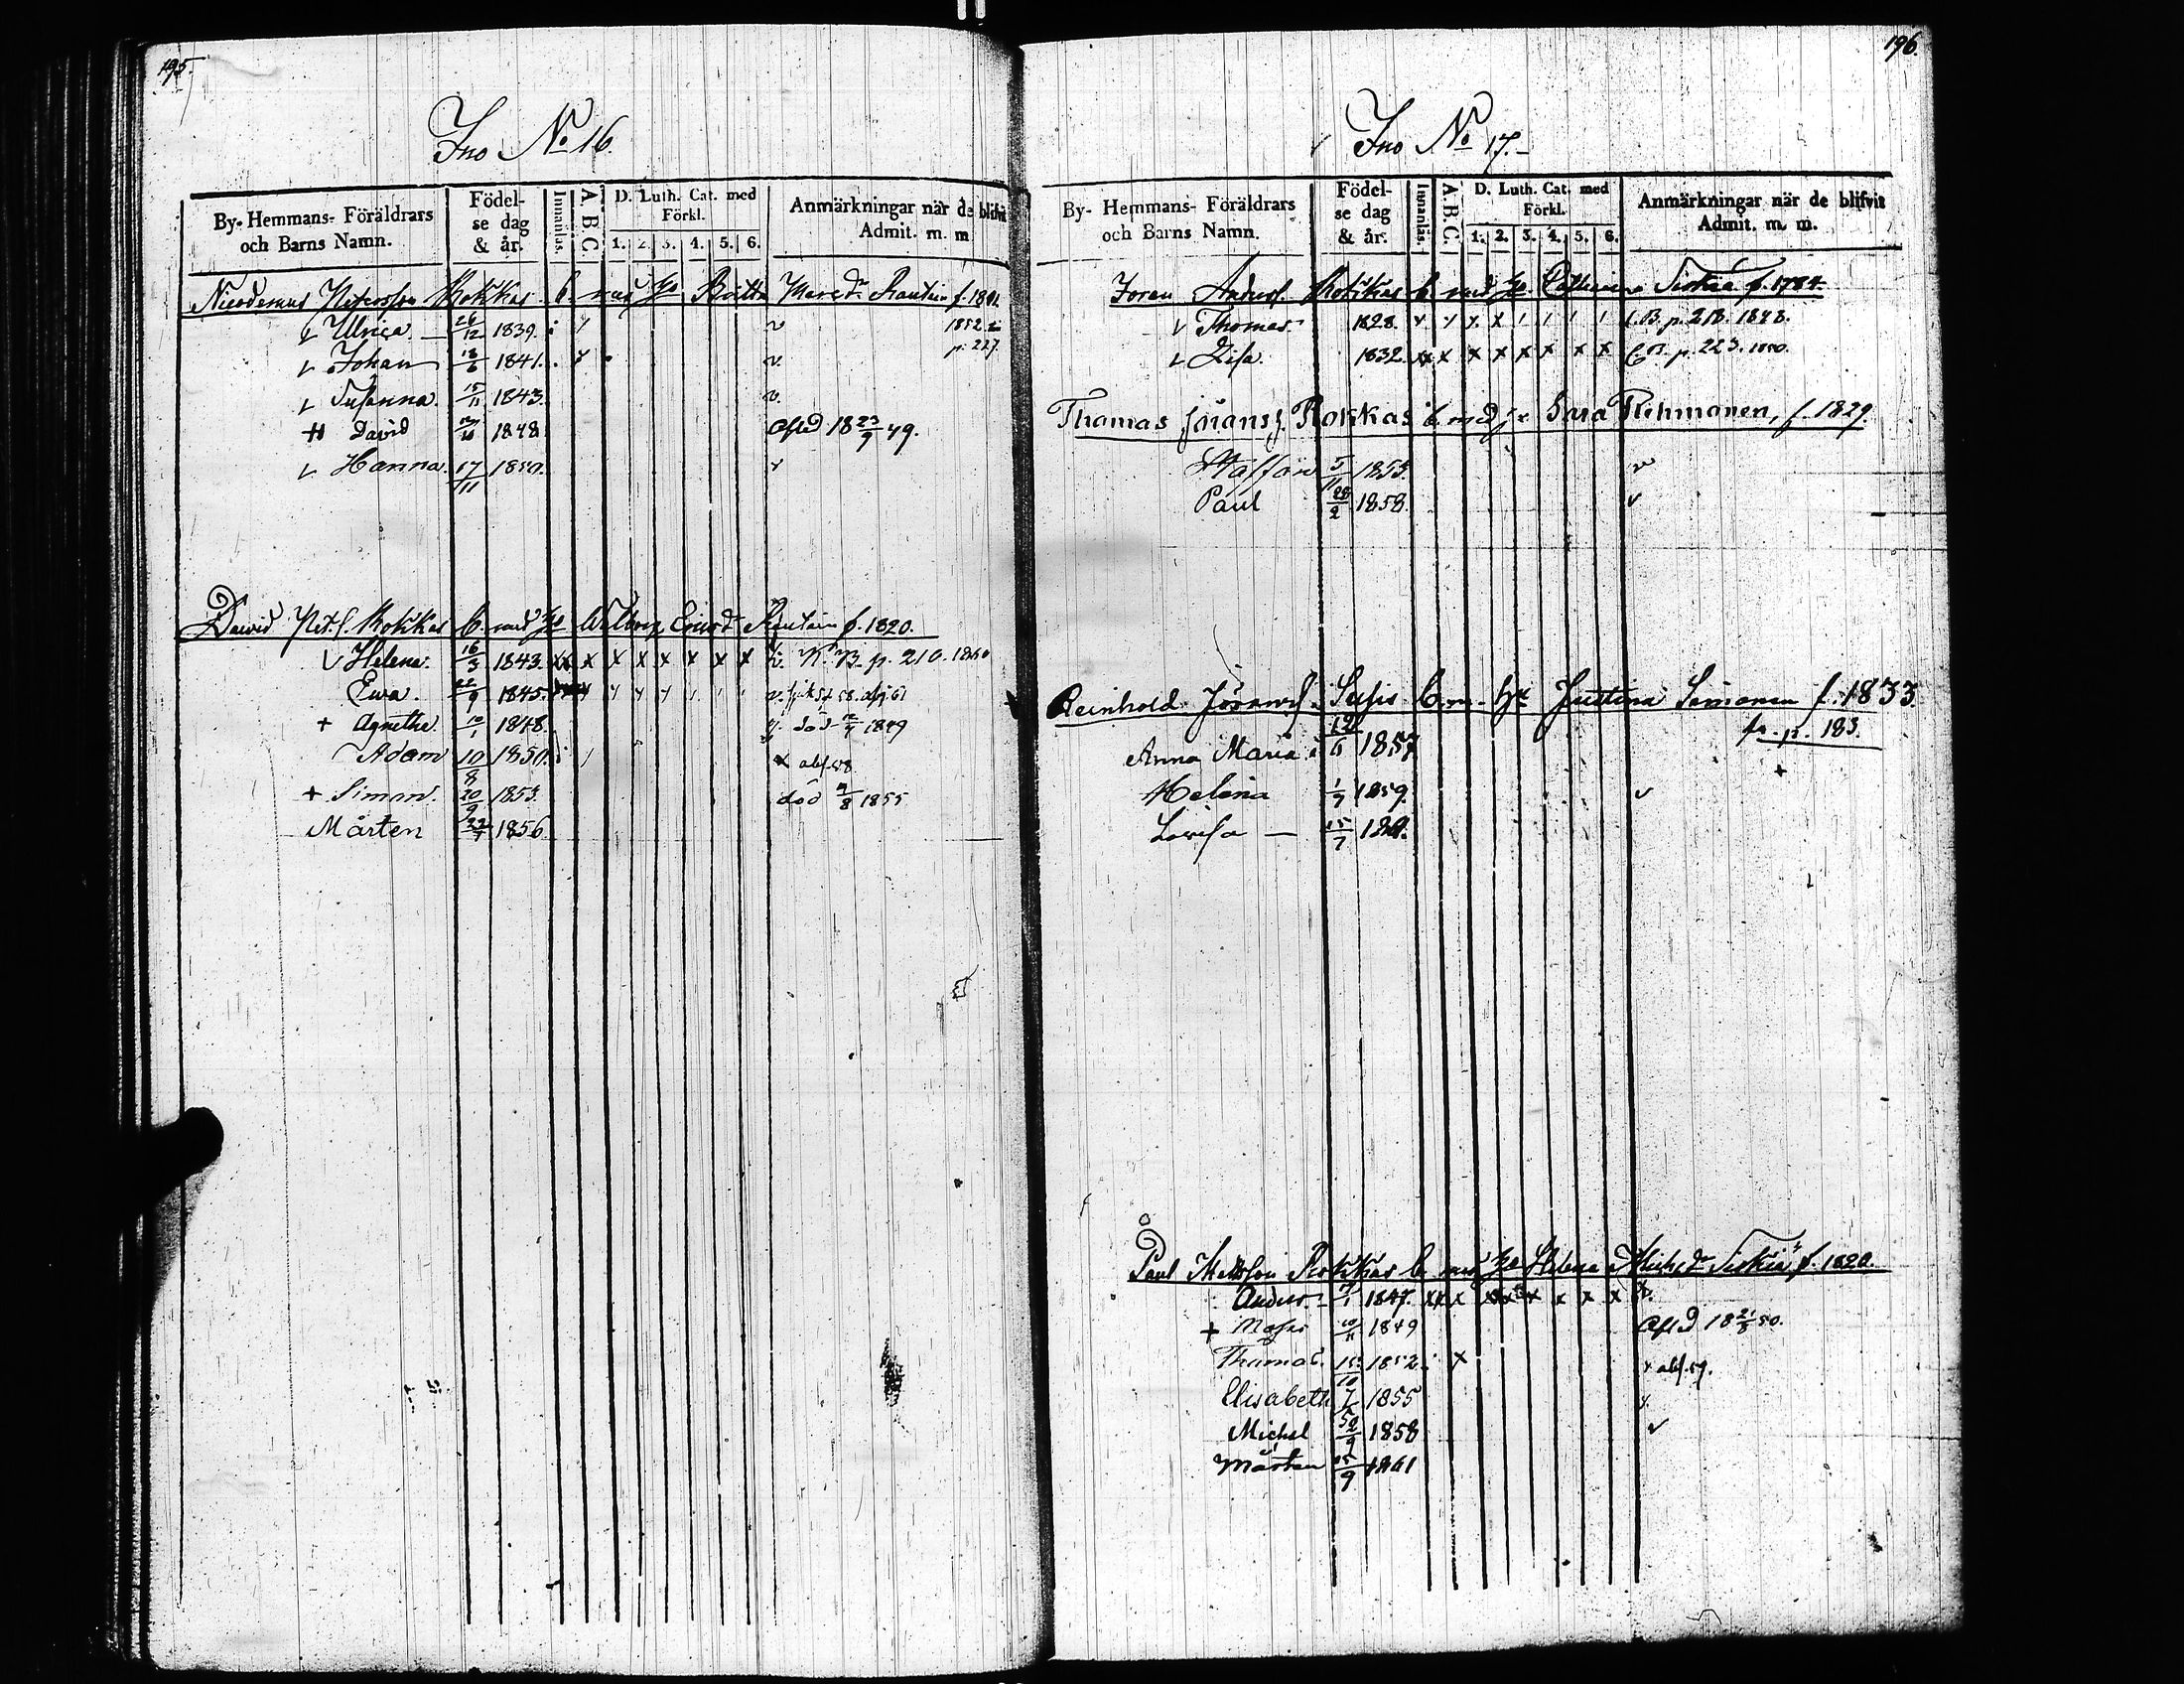 195.
Ino No 16.
By- Hemmans- Föräldrars och Barns Namn.
Födelse dag & år.
Innanläs.
A.B.C.
D. Luth. Cat. med Förkl.
1. 2. 3. 4. 5. 6.
Anmärkningar när de blifvit Admit. m. m
Nicodemus Petersson Rokkas b. med Britta f. 1801.
Ulrica 26/12 1839.
1852
p. 227.
Johan 18/6 1841.
Susanna 15/11 1843.
David 1848 Afled 18 23/9 49.
Hanna. 17/11 1850.
David Pet.s. Rokkas b. med Walborg f. 1820.
Helena. 16/3 1843. x x x x x x x K.B. p. 210. 1860
Ewa. 22/9 1845.
+ Agnetha. 10/1 1848. död 1849
Adam 10/8 1850. abs. 58
+ Simon. 20/9 1853. död 1855
Mårten 22/7 1856.
196.
Ino No 17.
By- Hemmans- Föräldrars och Barns Namn.
Födelse dag & år.
Innanläs.
A.B.C.
D. Luth. Cat. med Förkl.
1. 2. 3. 4. 5. 6.
Anmärkningar när de blifvit Admit. m. m.
Joran Anderss. Rokkas b. med Catharina Siskiä f. 1784.
Thomas. 1828. C.B. p. 213. 1848.
Lisa. 1832. x x x x x x x C.B. p. 223. 1850.
Thomas Jöranss. Rokkas b. med Sara f. 1829.
Staffan 5/11 1853.
Paul 28/2 1858.
Reinhold Jöranss. b. m. Justina Simonen f. 1833
fr. p. 183.
Anna Maria 1857 +
Helena 1/7 1859.
Lovisa — 15/7
Paul Mattsson Rokkas b. med Helena Mich.dr Siskiä f. 1820.
Anders 1847. x x x x x x x
+ Moses 10/11 1849 Afled 18 21/8 50.
Thomas. 15/10 1852. x abs. 59.
Elisabeth 1855
Michel 1858
Mårten 15/9 1861